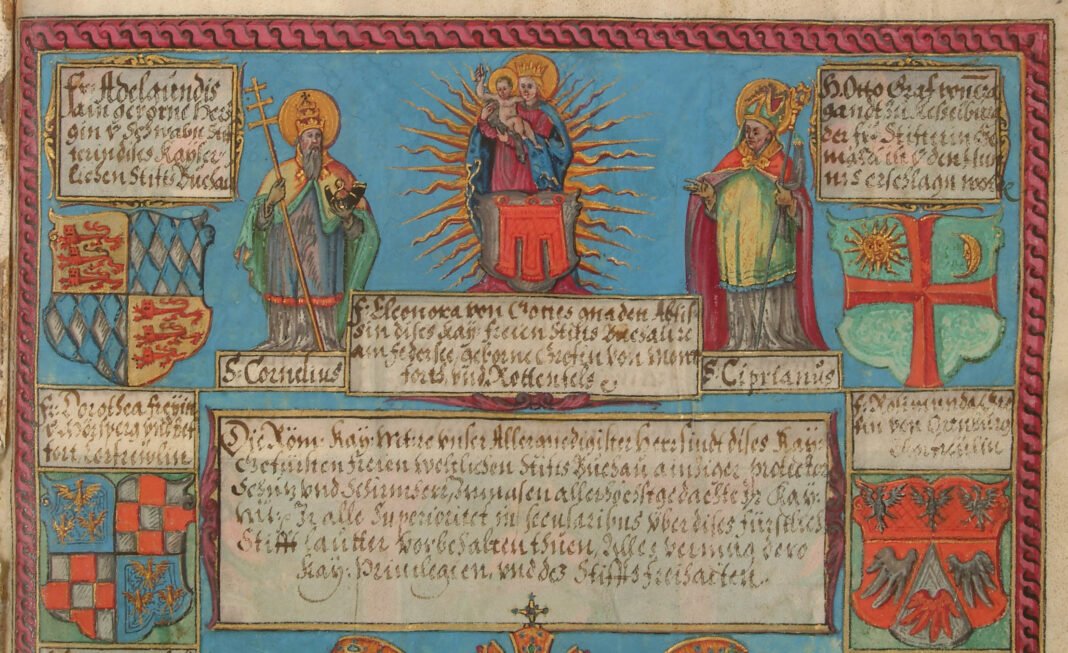 Fr: Adelaundis
ain geborne Her,
gin v: Schwabn Stif
terin dises Kayser,
lichen Stifts Buchau
H. Otto Graf von
der fr: Stifterin
ist in den Hun
nis erschlagn word
F. Eleonora von Gottes gnaden Abtis
sin dises Kay: freien Stifts Buchau
am federsee geborne Grefin von Mont
forth vnd Rottenfels
S. Cornelius
S. Ciprianus
Fr: Dorothea freyin
Fr:
in von Ortnburg
Chorfreülin
Die Röm: Kay: Mt: re vnser Allergnedigister herr sindt dises Kay:
Gefürsten freien weltlichen Stifts Buchau ainziger protector
Schutz vnd Schirmherr, Inmasen allerhöchstgedachte Ir Kay:
Mt: Ir alle Superioritet in secularibus vber dises fürstlich
Stifft lautter vorbehalten thüen, Alles vermüg dero
Kay: Priuilegien, vnd des Stiffts freihaiten